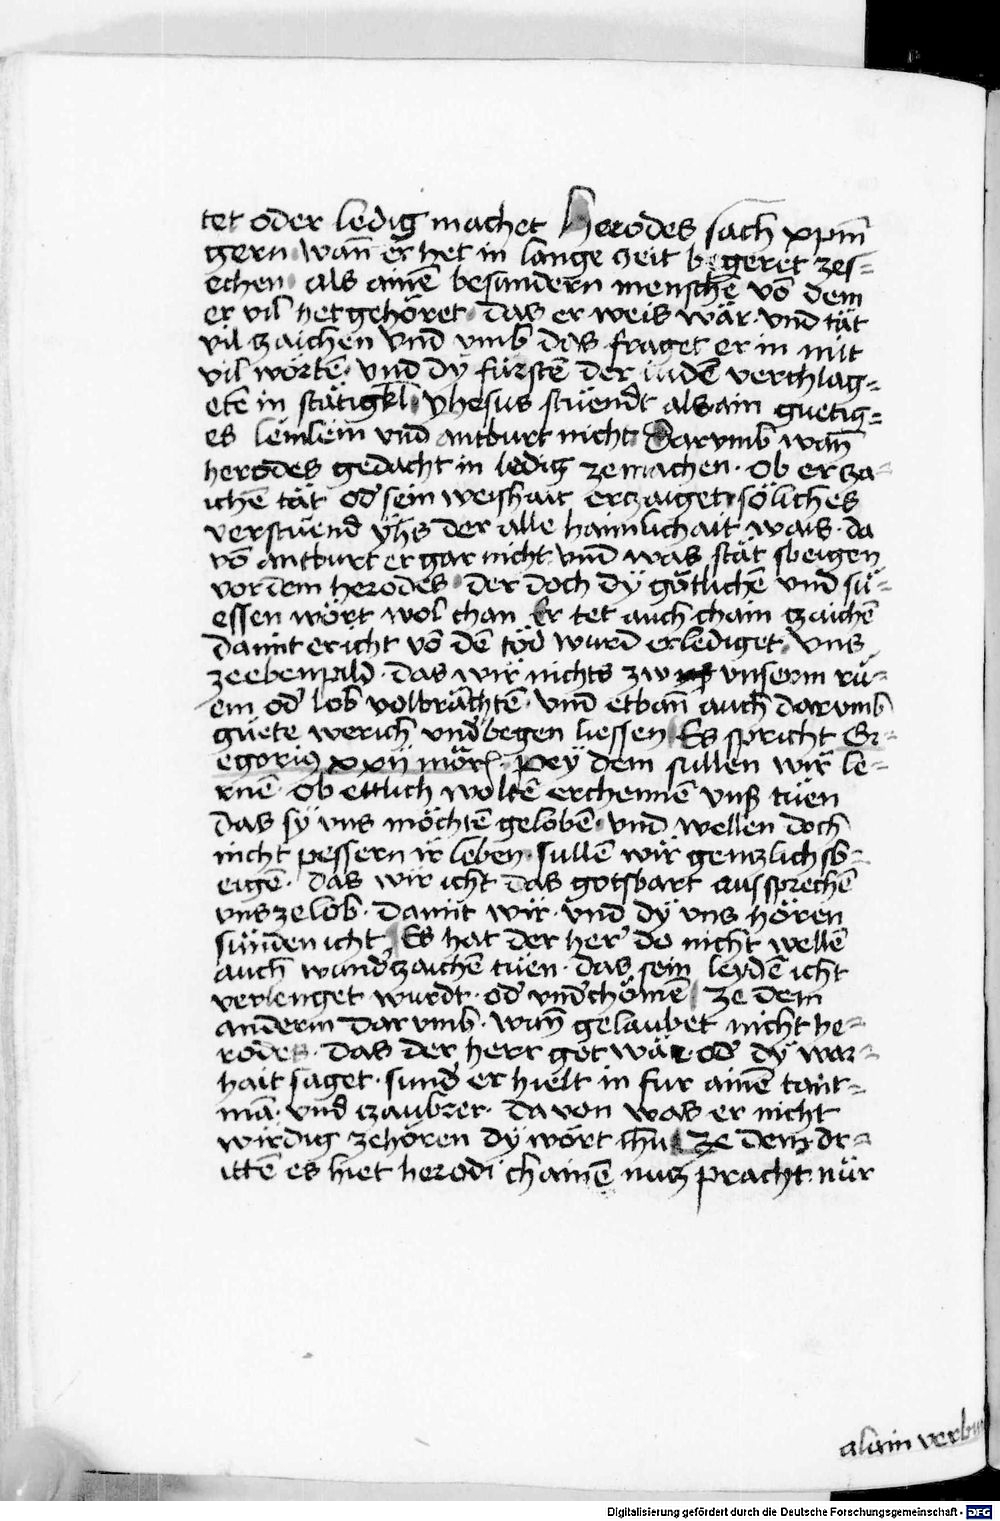 tet oder ledig machet Herodes sach xpm̄
gern· wañ er het in lange zeit begeret zes=
echen· als ainē besundern menschē vō dem
er vil het gehöret· das er weis wär· vnd tät
vil zaichen vnd vmb das fraget er in mit
vil wörtē· vnd dÿ fürstē der iudē verchlag=
etē in stätigkl· yhesus stuendt als ain guetig=
es lemlein vnd antburt nicht· Darvmb wañ
herodes gedacht in ledig zemachen· Ob er za=
ichē tät od' sein weishait erczaiget· söliches
verstuend ÿhs der alle haimlichait wais· da
vō antburt er gar nicht· vnd was stät sbeigen
vor dem herodes· der doch dÿ götlichē vnd sü=
essen wört wol chan Er tet auch chain zaichē
damit er icht vō dē tōd wurd erlediget· vns
ze ebenpild· das wir nichts zw vnserm rü=
em od' lob volbrächtē· vnd etbañ auch darvmb
guete werich vnd'begen liessen Es spricht Gr=
egorius xxij mōr· Pey dem sullen wir le=
rnē· Ob ettlich woltē erchennē vnſ tüen
das sÿ vns möchtē gelobē· vnd wellen doch
nicht pessern ir lebēn· sullē wir genczlich sb=
eigē· das wir icht das gotsbart aussprechē
vns ze lob· damit wir· vnd dÿ vns hören
sünden icht Es hat der her' do nicht wellē
auch wund'zaichē tüen· das sein leydē icht
verlenget wurdt· od' vnd'chömē ze dem
anderm darvmb· wañ gelaubet nicht he=
rodes· das der herr got wär· od' dÿ war=
hait saget· sund' er hielt in fur ainē tant=
mā· vnd zaubrer· da von was er nicht
wirdig zehören dÿ wört ihu Ze dem dr=
ittē es hiet herodi chainē nucz pracht· nür
alain verbu
Digitalisierung gefördert durch die Deutsche Forschungsgemeinschaft - DFG